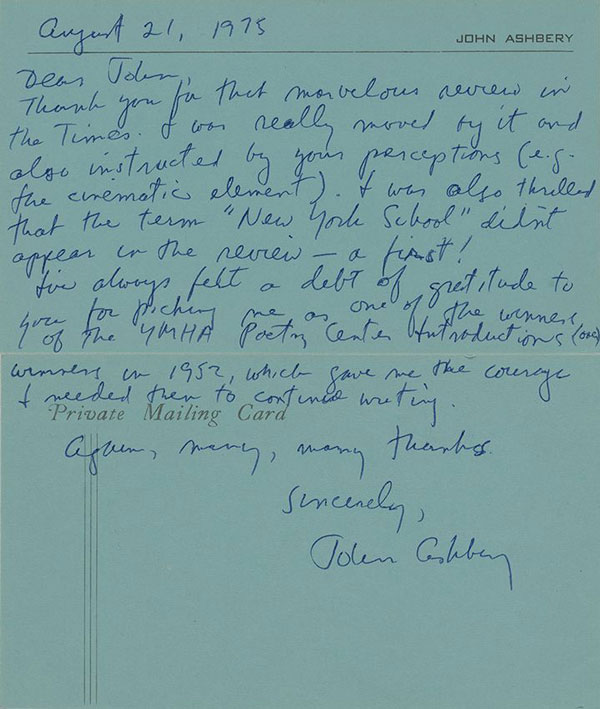 August 21, 1975
JOHN ASHBERY
Dear John,
Thank you for that marvelous review in
the Times. I was really moved by it and
also instructed by your perceptions (e.g.
the cinematic element). I was also thrilled
that the term "New York School" didn't
appear in the review — a first!
I've always felt a debt of gratitude to
you for picking me as one of the winners
of the YMHA Poetry Center Introductions (over)
winners in 1952, which gave me the courage
I needed then to continue writing.
Private Mailing Card
Again, many, many thanks.
Sincerely,
John Ashbery